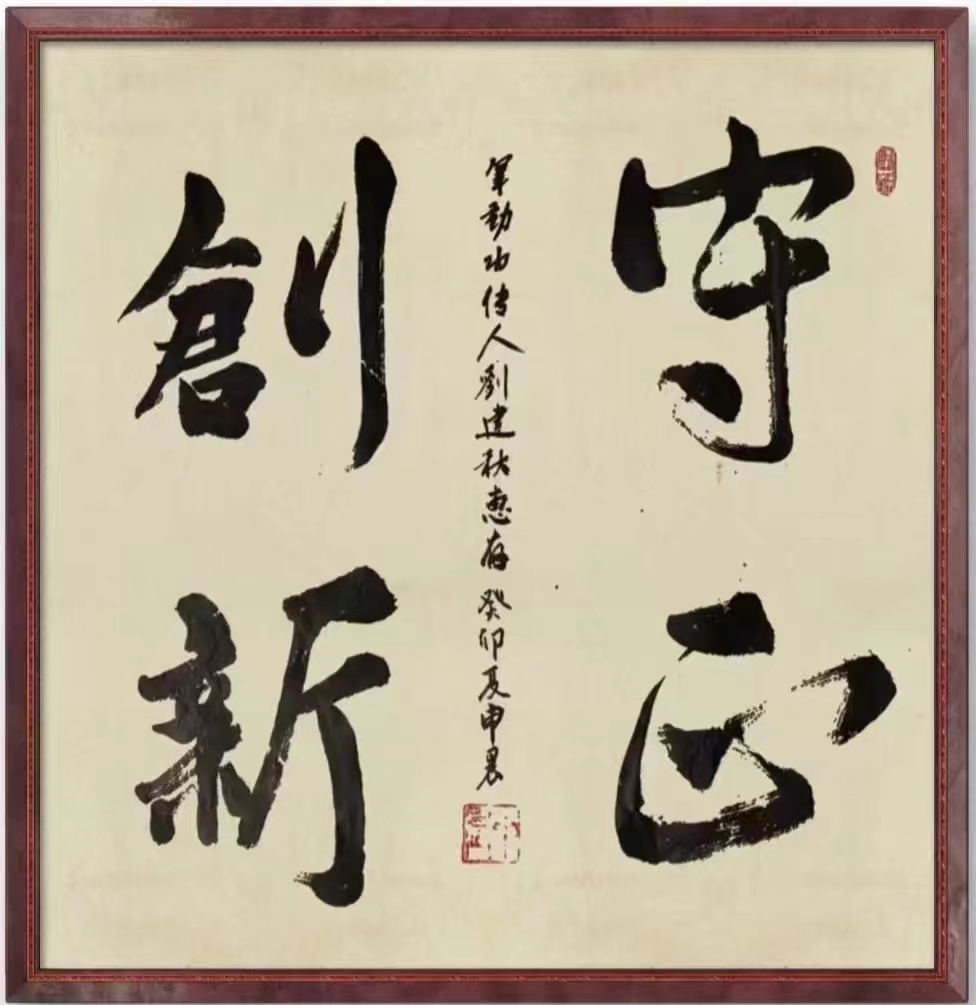 守正
創新
功传人劉建秋惠存 癸卯夏申晨